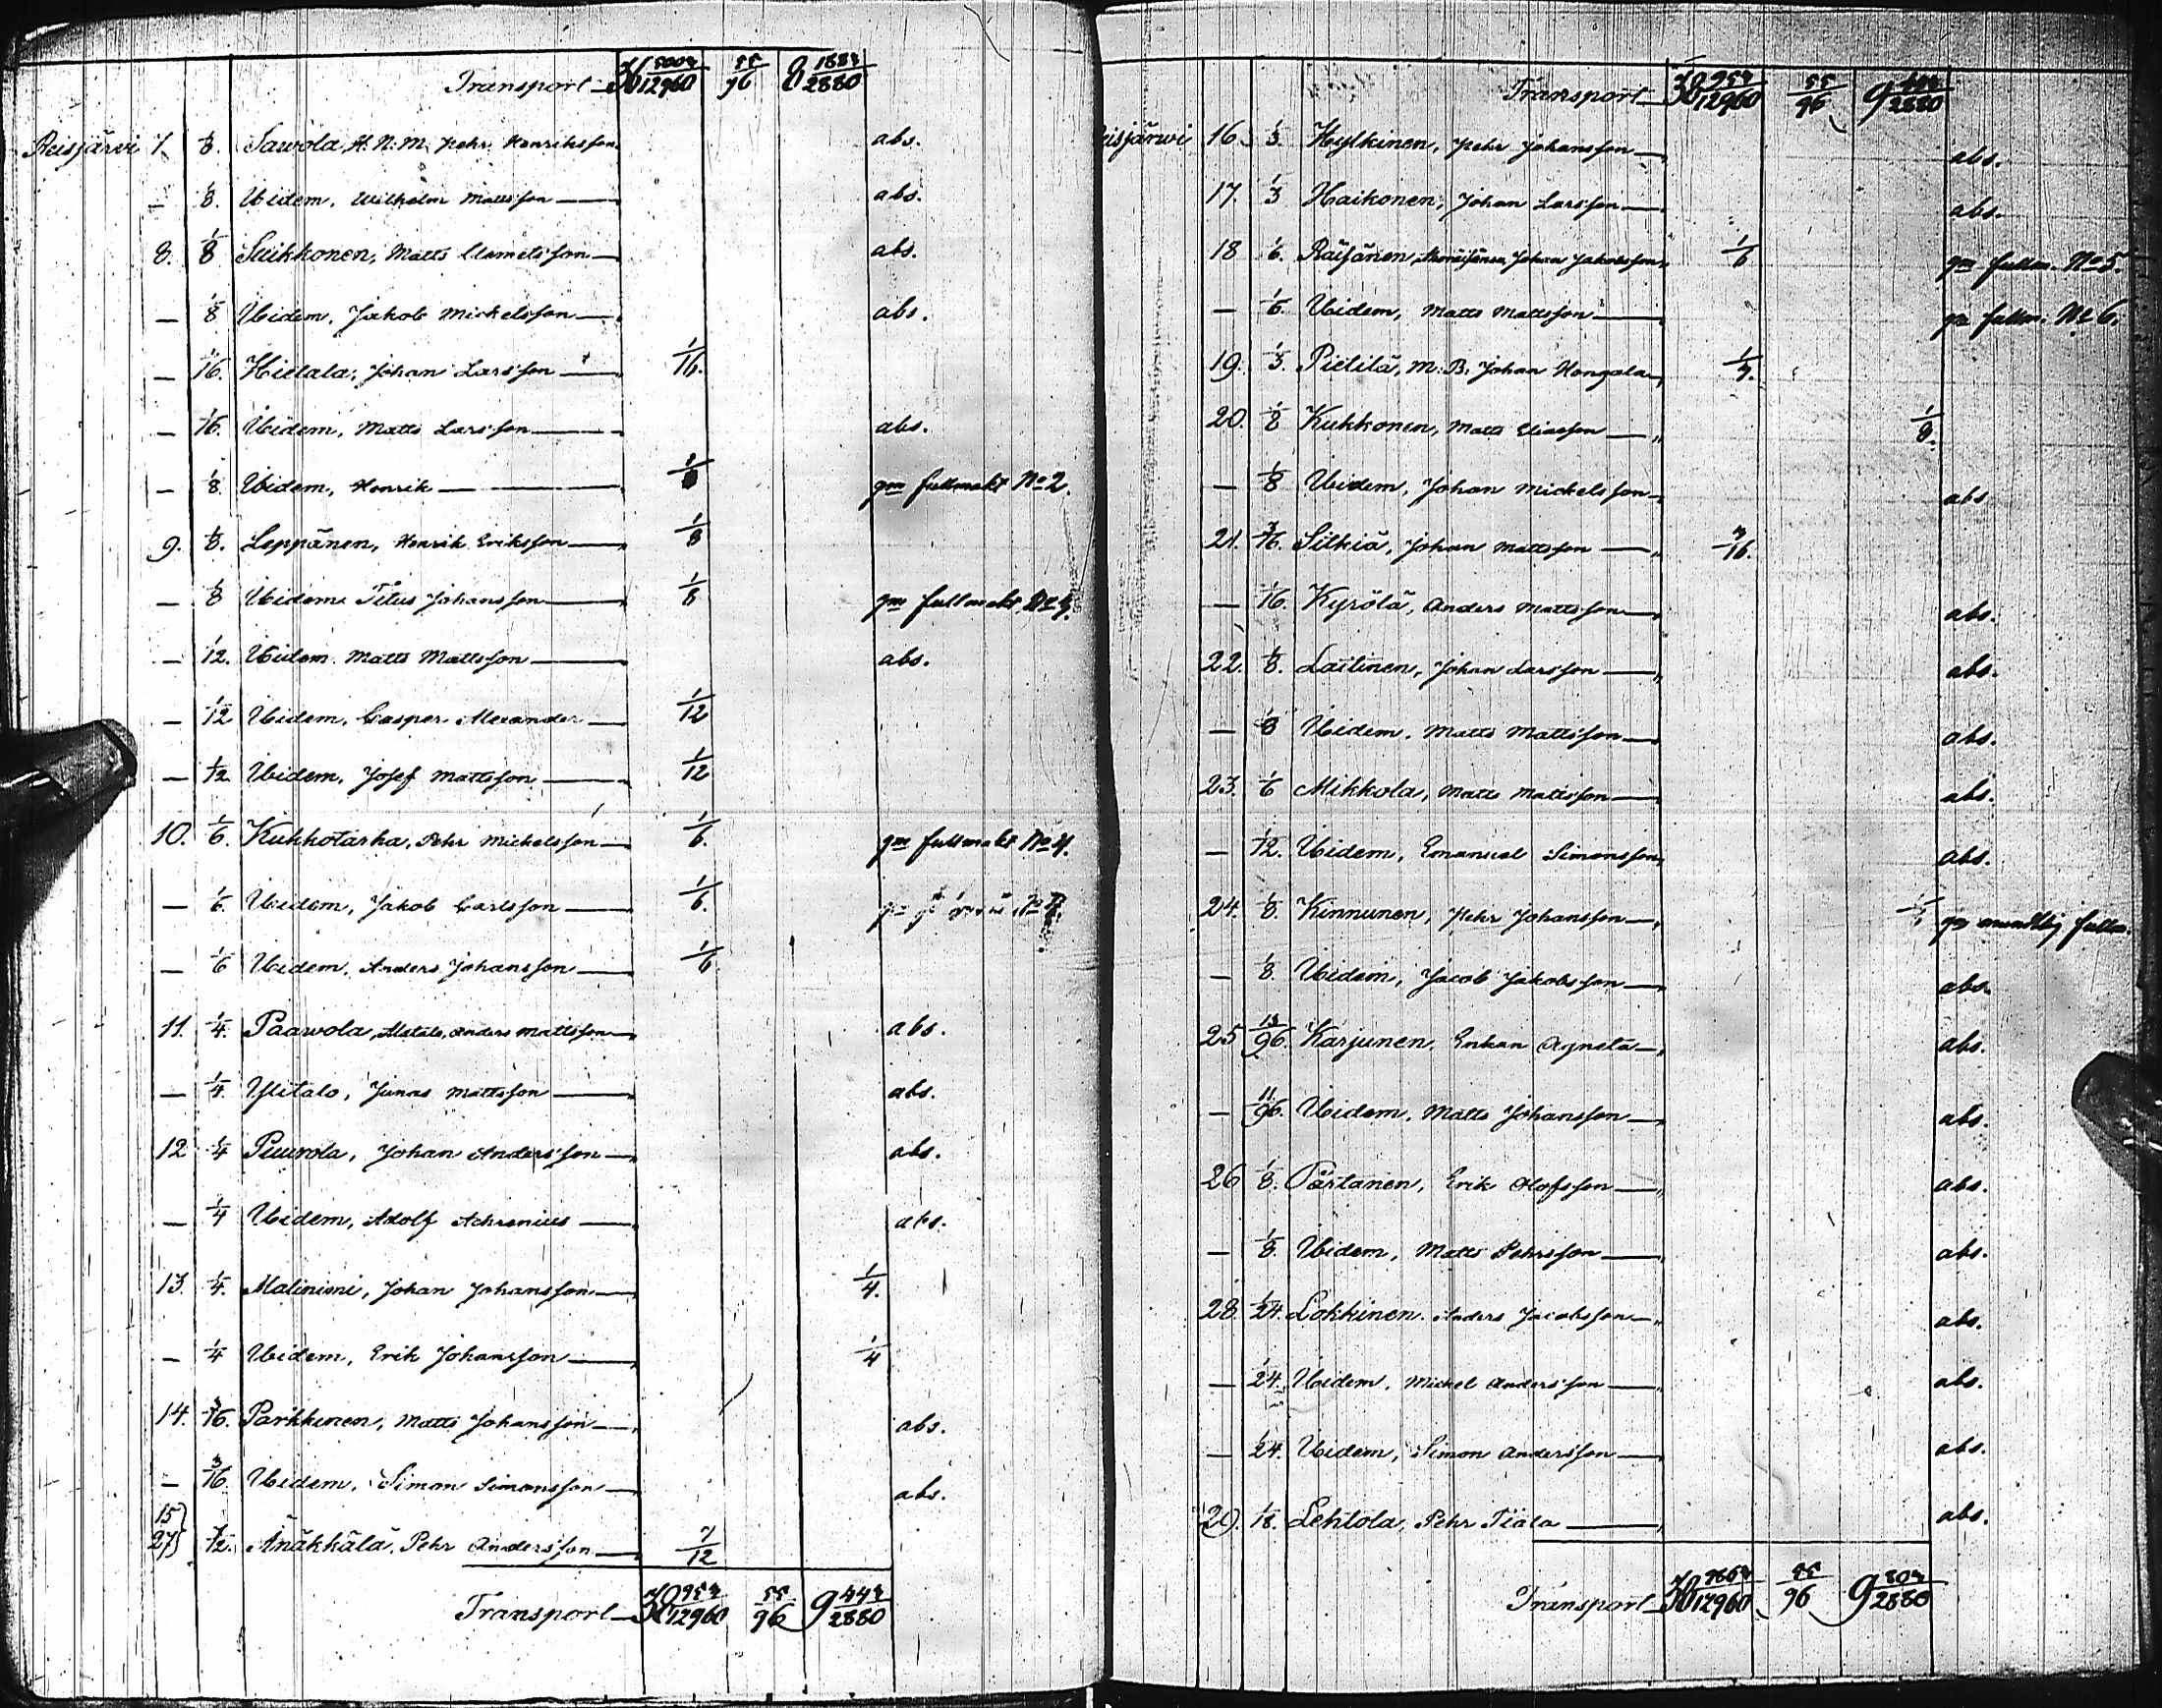 Transport 36 5003/12960 55/96 8 1883/2880
Reisjärvi 7. 1/8. Sawola, H. N. M. Pehr Henriksson abs.
— 1/8. Ibidem, Wilhelm Mattsson — abs.
8. 1/8 Siikkonen, Matts Clemetsson — abs.
— 1/8 Ibidem, Jakob Michelsson — abs.
— 1/16. Hietala, Johan Larsson — 1/16.
— 1/16. Ibidem, Matts Larsson — abs.
— 1/8. Ibidem, Henrik — 1/8 gm fullmakt No 2.
9. 1/8. Leppänen, Henrik Eriksson — 1/8
— 1/8 Ibidem Titus Johansson — 1/8 gm fullmakt No 3.
— 1/12. Ibidem. Matts Mattsson — abs.
— 1/12 Ibidem, Casper Alexander — 1/12
— 1/12 Ibidem, Josef Mattsson — 1/12
10. 1/6. Kukkotarha, Pehr Michelsson — 1/6. gm fullmakt No 4.
— 1/6. Ibidem, Jakob Carlsson — 1/6.
— 1/6 Ibidem, Anders Johansson — 1/6
11. 1/4. Paawola, Alatalo, Anders Mattsson — abs.
— 1/4. Ylitalo, Junas Mattsson — abs.
12 1/4 Puurola, Johan Andersson — abs.
— 1/4 Ibidem, Adolf Achrenius — abs.
13. 1/4. Maliniemi, Johan Johansson — 1/4.
— 1/4 Ibidem, Erik Johansson — 1/4
14. 3/16. Parkkinen, Matts Johansson — abs.
— 3/16. Ibidem, Simon Simonsson — abs.
15}
27} 7/12. Änäkkälä, Pehr Andersson — 7/12
Transport 38 953/12960 55/96 9 443/2880
Transport 38 953/12960 55/96 9 443/2880
eisjärwi 16. 1/3. Hylkinen, Pehr Johansson — abs.
17. 1/3 Haikonen, Johan Larsson — abs.
18 1/6. Räisänen, Johan Jakobsson 1/6 gm fullm. No 5.
— 1/6. Ibidem, Matts Mattsson — gm fullm. No 6.
19. 1/3. Pietilä, M. B. Johan Hongala — 1/3.
20. 1/8 Kukkonen, Matts Eliasson — 1/8.
— 1/8 Ibidem, Johan Michelsson — abs
21. 3/16. Silkiä, Johan Mattsson — 3/16.
— 1/16. Kyrölä, Anders Mattsson — abs.
22. 1/8. Laitinen, Johan Larsson — abs.
— 1/8 Ibidem. Matts Mattsson — abs.
23. 1/6 Mikkola, Matts Mattsson — abs.
— 1/12. Ibidem, Emanuel Simonsson abs.
24. 1/8. Kinnunen, Pehr Johansson — gm muntlig fullm.
— 1/8. Ibidem, Jacob Jakobsson — abs.
25 13/96. Karjunen, Enkan Agneta — abs.
— 11/96. Ibidem, Matts Johansson — abs.
26 1/8. Partanen, Erik Olofsson — abs.
— 1/8. Ibidem, Matts Pehrsson — abs.
28. 1/24. Lokkinen. Anders Jacobsson — abs.
— 1/24. Ibidem, Michel Andersson — abs.
— 1/24. Ibidem, Simon Andersson — abs.
29. 1/18. Lehtola, Pehr Tiala — abs.
Transport 38 9863/12960 55/96 9 803/2880